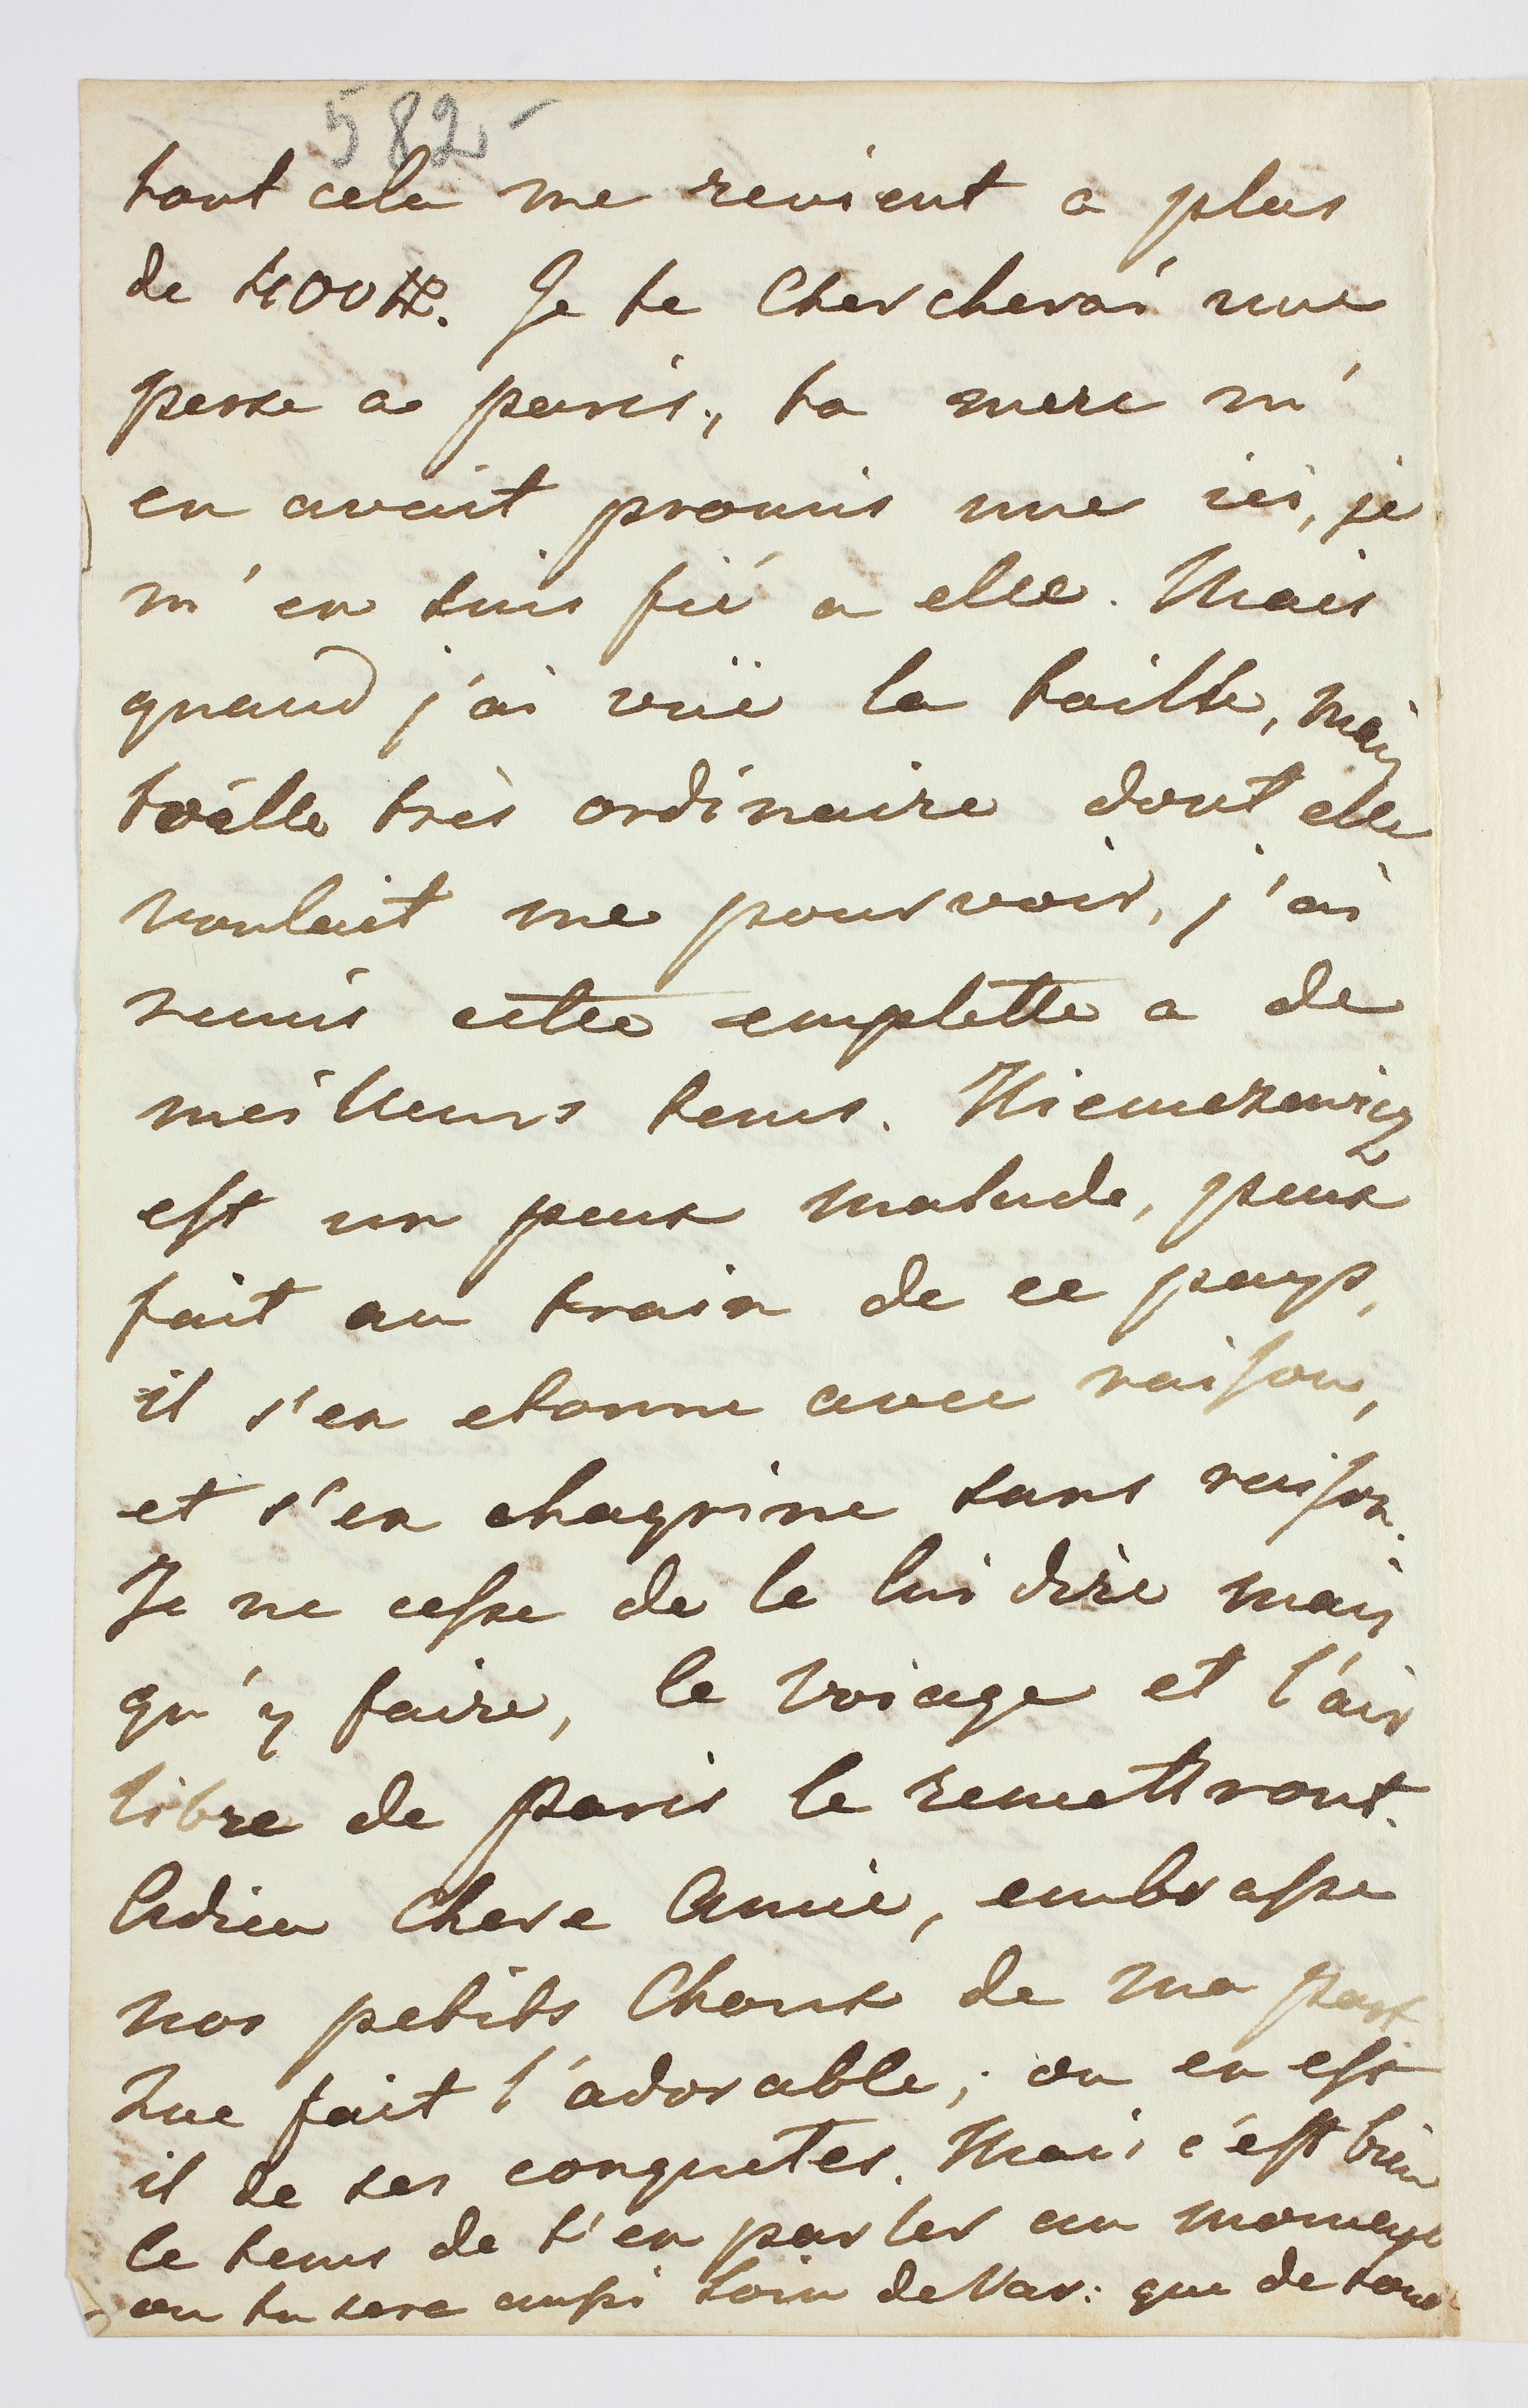 582
tout cela me revient a plus
de 400 #. Je te Chercherai une
perse a paris, ta mere m'
en avait promis une ici, je
m'en suis fié a elle. Mais
quand j'ai vuë la taille, mais
toëlle très ordinaire dont elle
voulait me pourvoir, j'ai
remis cette emplette a de
meilleurs tems. Niemcewicz
est un peux malade, peux
fait au train de ce pays,
il s'en etonne avec raison,
et s'en chagrine sans raison.
Je ne cesse de le lui dire mais
qu'y faire, le voiage et l'air
libre de paris le remettront.
Adieu Chere Amie, embrasse
nos petits Choux de ma part.
Que fait l'adorable; ou en est
il de ses conquetes. Mais c'est bien
le tems de t'en parler au moment
ou tu sera aussi loin de Var: que de